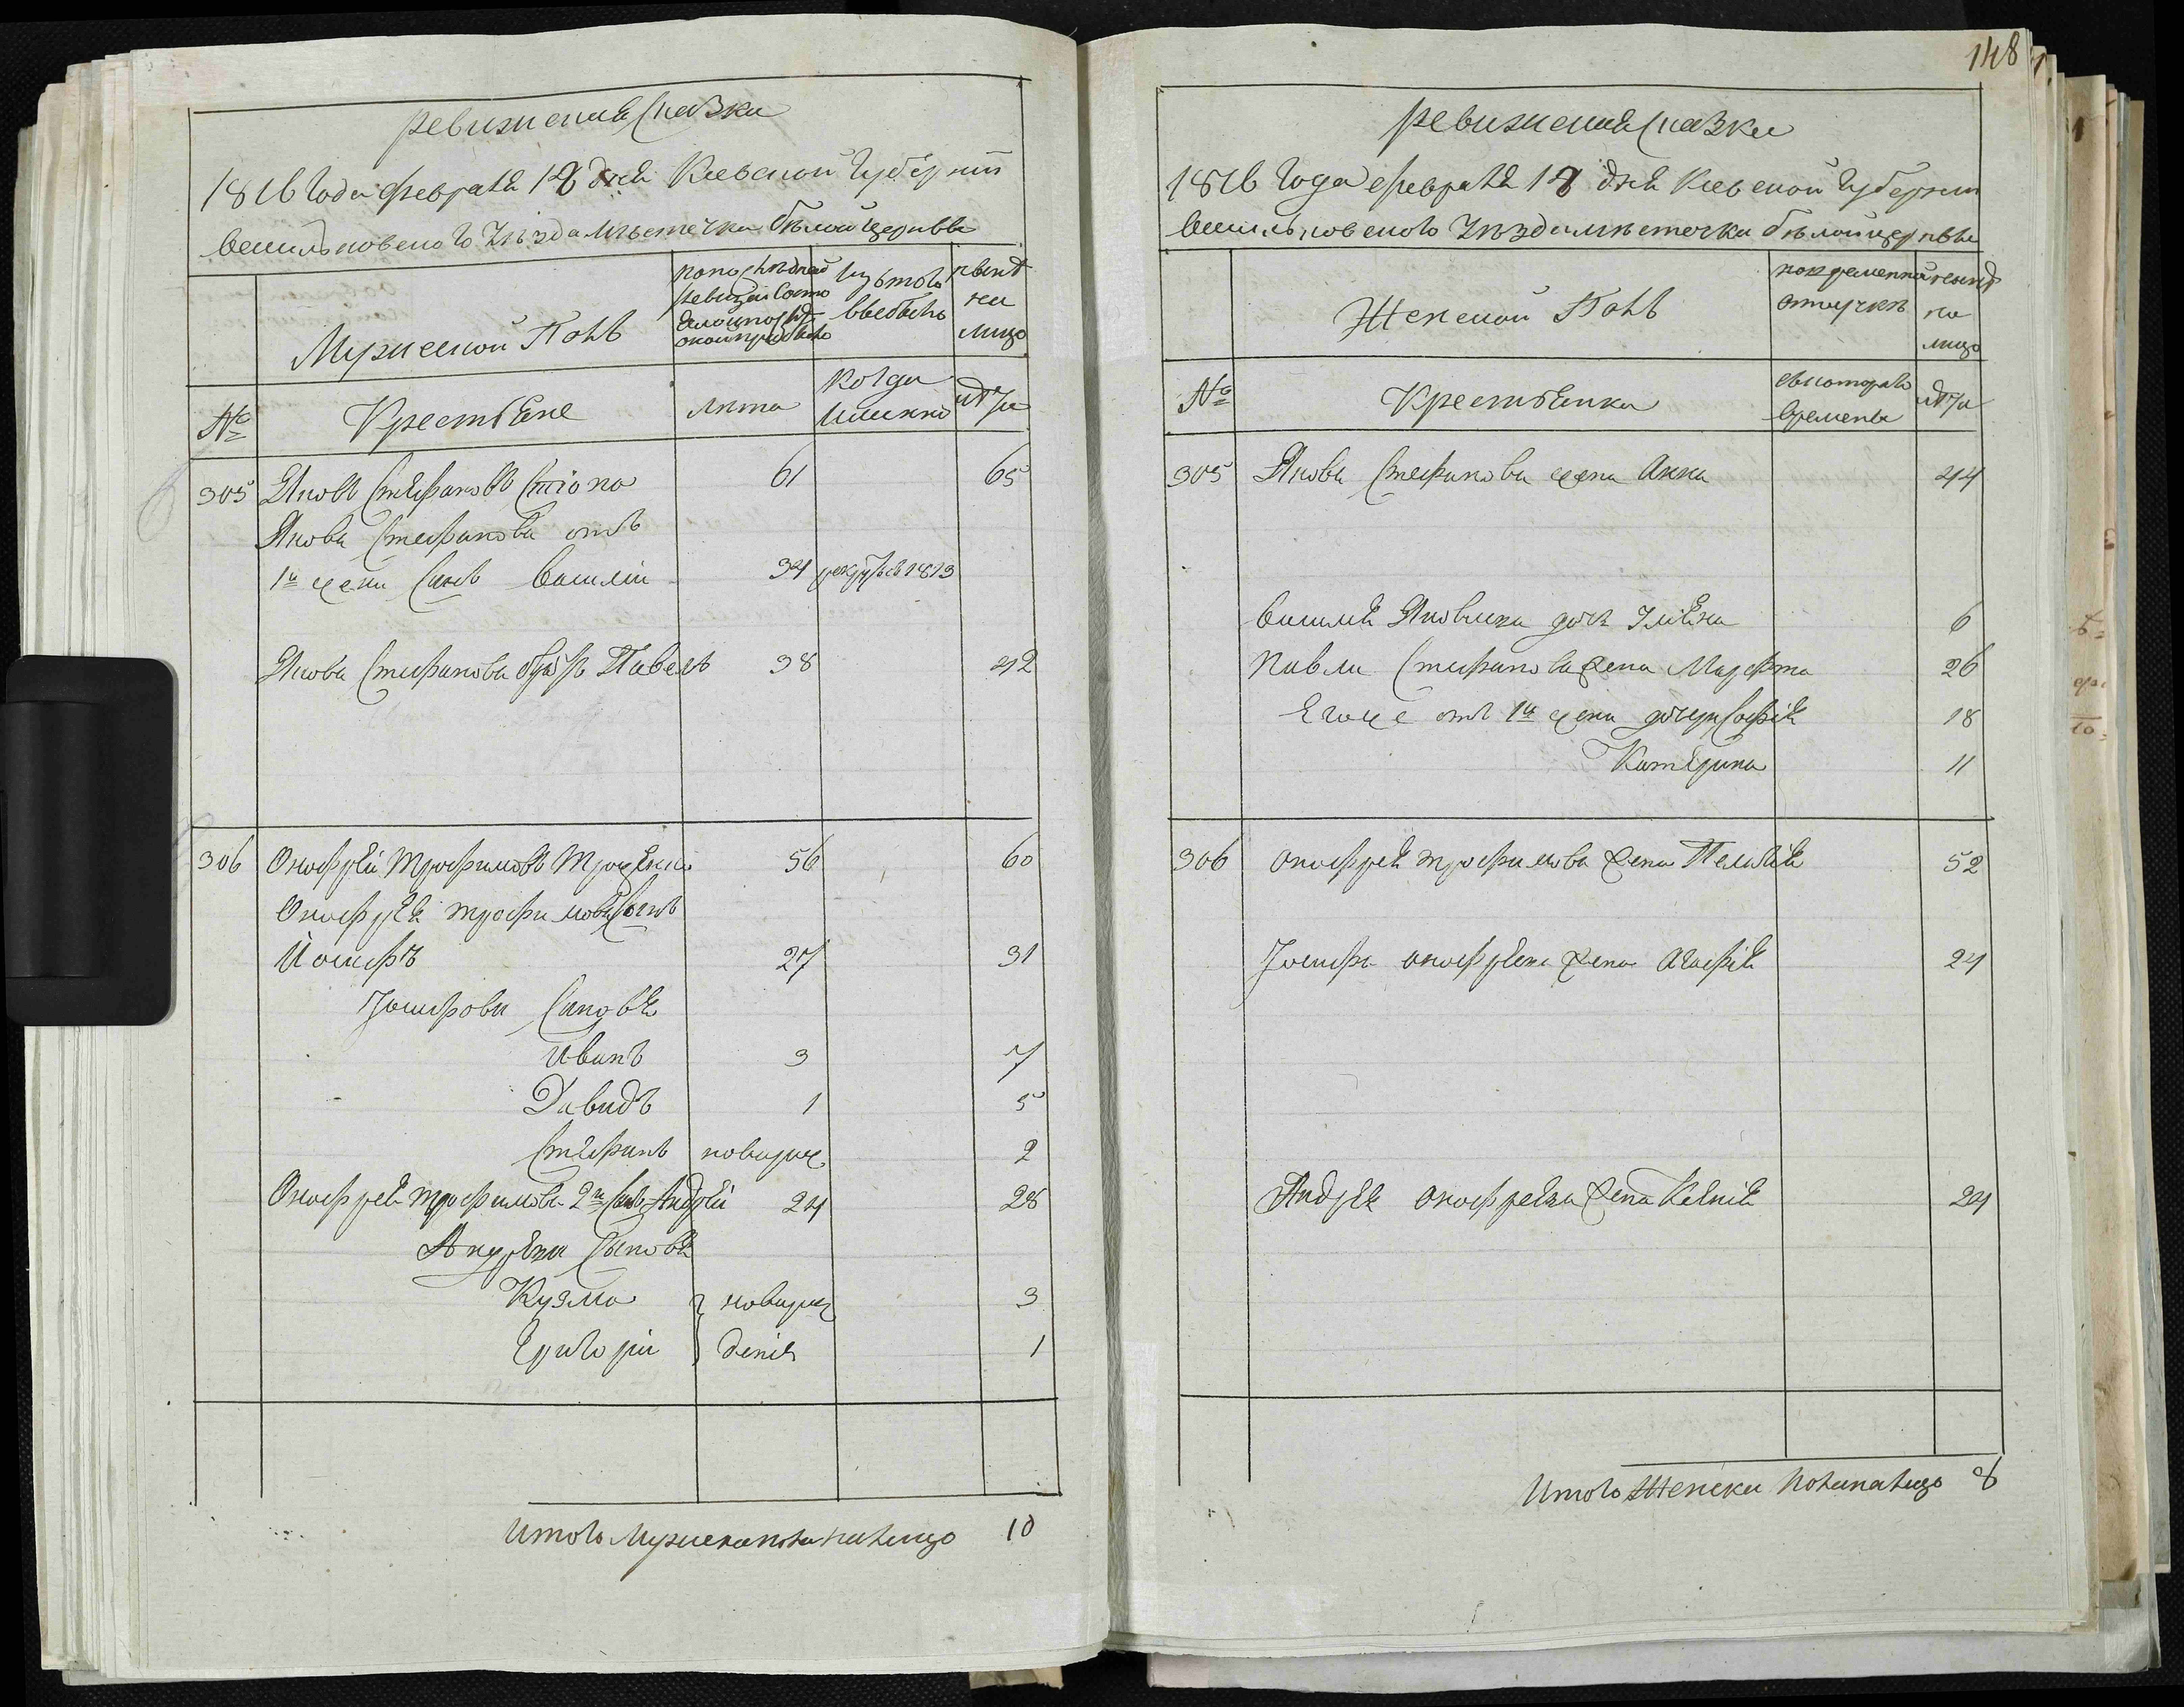 ревизская сказка
1816 Года февраля 18 дня Киевской Губернии
васильковского Уѣзда мѣстечка бѣлой церкви
Мужеской Полъ
по последней ревизии состояло и после оной прибыло
изъ того выбыло
нынѣ на лицо
№
Крестьяне
лѣта
когда именно
лѣта
305 Яковъ Стефановъ 61 65
Якова Стефанова отъ
1й жены Сынъ василій 34 рекрутъ въ 1813
Якова Стефанова братъ Павелъ 38 42
306 Онофрей Трофимовъ 56 60
Онофрея трофимова Сынъ
Иосифъ 27 31
Іосифова Сыновья
Иванъ 3 7
Давидъ 1 5
Стефанъ новорож 2
Онофрея трофимова 2й Сынъ Андрей 24 28
Андрея Сыновья
Кузма новорож 3
Григорій денія 1
Итого Мужеска пола на лицо 10
148
ревизская сказка
1816 Года февраля 18 дня Киевской Губернии
васильковского Уѣзда мѣстечка бѣлой церкви
Женской Полъ
во временной отлучкѣ
нынѣ на лицо
№
Крестьянки
съ котораго времени
лѣта
305 Якова Стефанова жена Анна 44
василия Яковлева дочь 6
Павла Стефанова жена Марфа 26
Его же отъ 1й жены дочери Софія 18
Катерина 11
306 онофрея трофимова жена Пелагія 52
Іосифа онофреева жена Агафія 24
Андрея онофреева жена Ксенія 24
Итого Женска пола на лицо 8